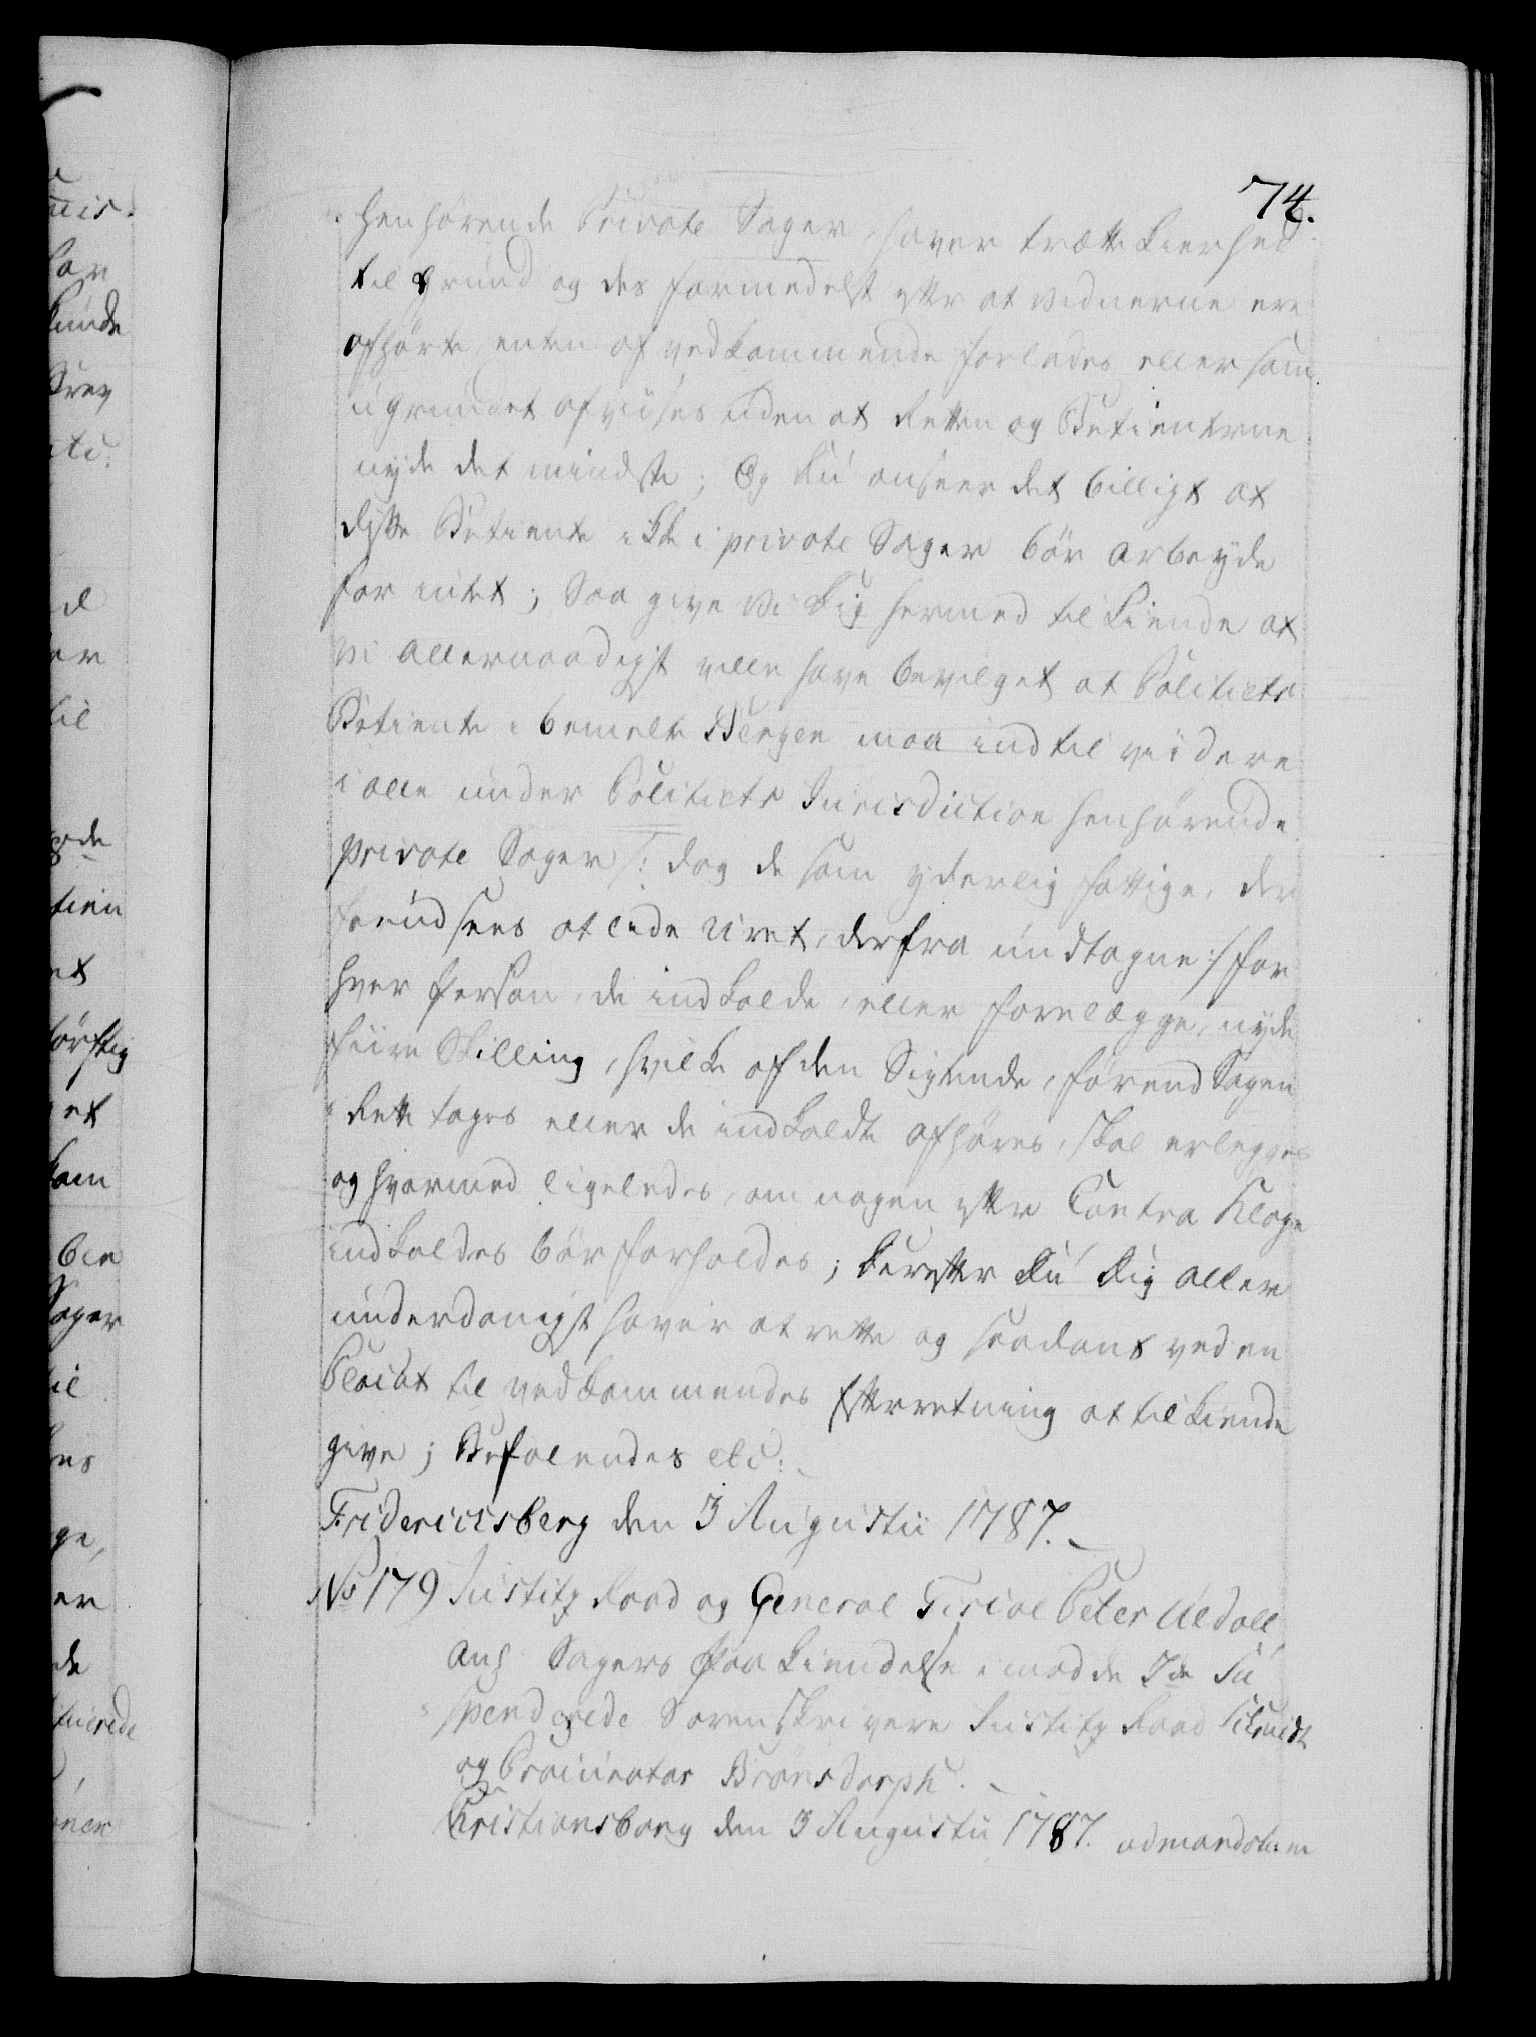 74.
henhørende Private Sager, haver trættekierhed
til Grund og des formedelst efter at Vidnerne ere
afhørte, enten af vedkommende forlades eller som
ugrundet afviises uden at Retten og Betienterne
nyde det mindste; Og Du anseer det billigt at
disse Betiente ikke i private Sager bør arbeyde
for intet; Saa give Vi Dig hermed tilkiende at
Vi allernaadigst ville have bevilget at Politiets
Betiente i bemelte Bergen maa indtil viidere
i alle under Politiets Jurisdiction henhørende
private Sager /: dog de som yderlig fattige, der
formodes at lide Uret, derfra undtagne :/ for
hver Person, de indkalde, eller forelægge, nyde
fiire Skilling, hvilke af den Sigtende, førend Sagen
i Rette tages eller de indkaldte afhøres, skal erlegges
og hvormed ligeledes, om nogen efter Contra Klage
indkaldes bør forholdes; Derefter Du Dig aller
underdanigst haver at rette og saadant ved en
Placat til vedkommendes Efterretning at tilkiende
give; Befalendes etc:
Fridericisberg den 3 Augustii 1787.
No 179 Justitz Raad og General Fiscal Peter Uldall
Ang: Sagers Paakiendelse imod de 2de Su
spenderede Sorenskrivere Justitz Raad Schmidt
og Procurator Brønsdorph.
Christiansborg den 3 Augustii 1787. admandatum